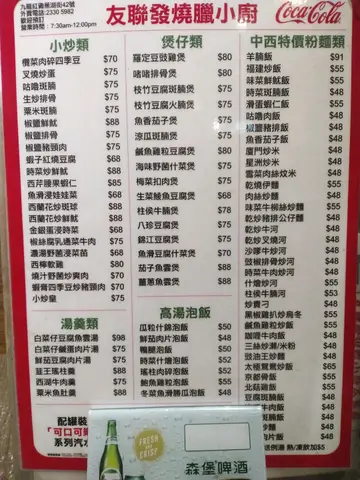 九龍紅磡蕪湖街42號
外賣電話:2330 5982
歡迎預訂
營業時間:7:30am-12:00pm
友聯發燒臘小廚
Coca-Cola
小炒類
欖菜肉碎四季豆 $70
叉燒炒蛋 $75
咕嚕斑腩 $75
生炒排骨 $75
粟米斑腩 $75
椒鹽鮮魷 $88
椒鹽排骨 $75
椒鹽豬頸肉 $75
蝦子紅燒豆腐 $68
時菜炒鮮魷 $88
西芹腰果蝦仁 $85
魚滑浸娃娃菜 $68
西蘭花炒斑球 $88
西蘭花炒鮮魷 $88
金銀蛋浸時菜 $68
椒絲腐乳通菜牛肉 $75
濃湯野菌浸菜苗 $68
西檸軟雞 $80
燒汁野菌炒爽肉 $70
蝦醬四季豆炒豬頸肉 $70
小炒皇 $75
湯羹類
白菜仔豆腐魚雲湯 $98
白菜仔鹹蛋肉片湯 $75
鮮茄豆腐肉片湯 $75
韮王瑤柱羹 $88
西湖牛肉羹 $75
粟米魚肚羹 $88
煲仔類
羅定豆豉雞煲 $80
啫啫排骨煲 $75
枝竹豆腐斑腩煲 $80
枝竹豆腐火腩煲 $75
魚香茄子煲 $75
涼瓜斑腩煲 $75
鹹魚雞粒豆腐煲 $80
海味野菌什菜煲 $75
梅菜扣肉煲 $75
生菜鯪魚豆腐煲 $68
柱侯牛腩煲 $78
八珍豆腐煲 $75
錦江豆腐煲 $75
魚滑豆腐什菜煲 $75
茄子魚雲煲 $88
薑蔥魚雲煲 $88
高湯泡飯
瓜粒什錦泡飯 $50
鮮茄肉片泡飯 $48
鴨腿泡飯 $50
時菜什燴泡飯 $52
瑤柱肉碎泡飯 $52
鮑魚雞粒泡飯 $55
冬菜魚滑勝瓜泡飯 $48
中西特價粉麵類
羊腩飯 $91
福建炒飯 $55
味菜鮮魷飯 $55
時菜斑腩飯 $48
滑蛋蝦仁飯 $55
咕嚕肉飯 $48
椒鹽豬排飯 $48
魚香茄子飯 $48
廈門炒米 $48
星洲炒米 $48
雪菜肉絲炆米 $48
乾燒伊麵 $55
肉絲炒麵 $48
味菜牛柳絲炒麵 $55
乾炒豬排公仔麵 $48
乾炒牛河 $48
乾炒叉燒河 $48
沙嗲牛炒河 $48
豉椒排骨炒河 $48
時菜牛肉炒河 $48
什燴炒河 $55
柱侯牛腩河 $53
炒貴刁 $48
黑椒雞扒炒烏冬 $55
鹹魚雞粒炒飯 $55
咖喱牛肉飯 $48
三絲炒瀨/米粉 $48
豉油王炒麵 $48
太極鴛鴦炒飯 $65
京都骨飯 $55
北菇雞飯 $55
豆腐斑腩飯 $48
$48
$48
$48
$48
熱/凍飲加$5
配罐裝
「可口可樂
系列汽水
FRESH and CRISP
森堡啤酒